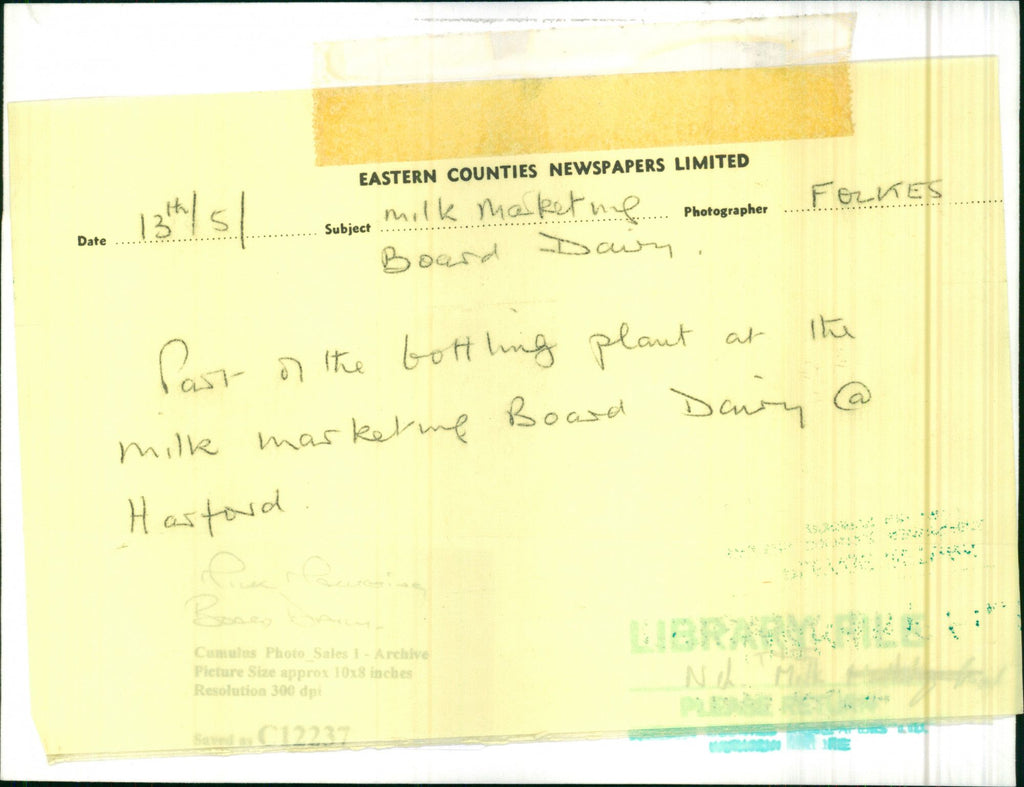 EASTERN COUNTIES NEWSPAPERS LIMITED
Date 13th/5/ Subject Milk Marketing Photographer FOLKES
Board Dairy.
Part of the bottling plant at the
Milk Marketing Board Dairy @
Harford
Board Dairy.
Cumulus Photo_Sales 1 - Archive
Picture Size approx 10x8 inches
Resolution 300 dpi
Saved as C12237
LIBRARY FILE
Milk
PLEASE RETURN